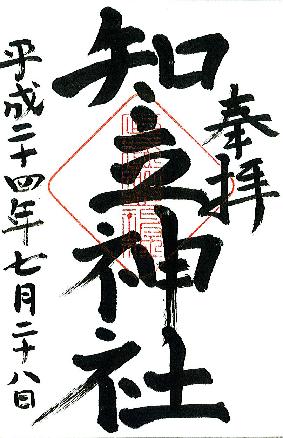 奉拝
知立神社
平成二十四年七月二十八日